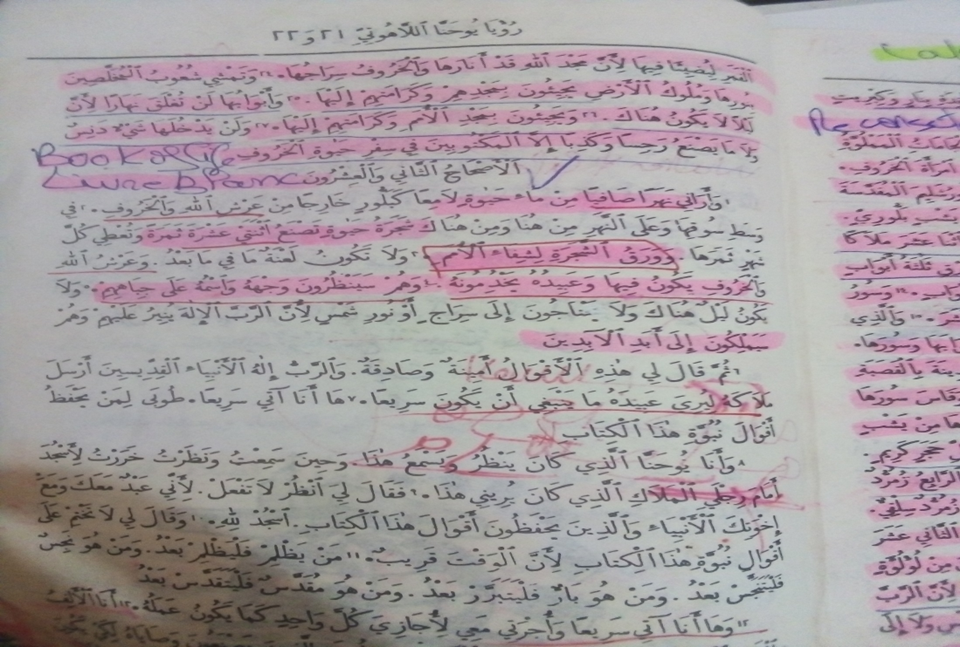 رُؤْيَا يُوحَنَّا ٱللَّاهُوتِيِّ ٢١ وَ ٢٢
ٱلْقَمَرِ لِيُضِيئَا فِيهَا لِأَنَّ مَجْدَ ٱللهِ قَدْ أَنَارَهَا وَٱلْخَرُوفُ سِرَاجُهَا. ٢٤ وَتَمْشِي شُعُوبُ ٱلْمُخَلَّصِينَ
بِنُورِهَا وَمُلُوكُ ٱلْأَرْضِ يَجِيئُونَ بِمَجْدِهِمْ وَكَرَامَتِهِمْ إِلَيْهَا. ٢٥ وَأَبْوَابُهَا لَنْ تُغْلَقَ نَهَارًا لِأَنَّ
لَيْلًا لَا يَكُونُ هُنَاكَ. ٢٦ وَيَجِيئُونَ بِمَجْدِ ٱلْأُمَمِ وَكَرَامَتِهِمْ إِلَيْهَا. ٢٧ وَلَنْ يَدْخُلَهَا شَيْءٌ دَنِسٌ
وَلَا مَا يَصْنَعُ رَجِسًا وَكَذِبًا إِلَّا ٱلْمَكْتُوبِينَ فِي سِفْرِ حَيٰوةِ ٱلْخَرُوفِ
Book of life
ٱلْأَصْحَاحُ ٱلثَّانِي وَٱلْعِشْرُونَ
Livre Blanc
١ وَأَرَانِي نَهْرًا صَافِيًا مِنْ مَاءِ حَيٰوةٍ لَامِعًا كَبَلُّورٍ خَارِجًا مِنْ عَرْشِ ٱللهِ وَٱلْخَرُوفِ. ٢ فِي
وَسَطِ سُوقِهَا وَعَلَى ٱلنَّهْرِ مِنْ هُنَا وَمِنْ هُنَاكَ شَجَرَةُ حَيٰوةٍ تَصْنَعُ ٱثْنَتَيْ عَشْرَةَ ثَمَرَةً وَتُعْطِي كُلَّ
شَهْرٍ ثَمَرَهَا. وَوَرَقُ ٱلشَّجَرَةِ لِشِفَاءِ ٱلْأُمَمِ. ٣ وَلَا تَكُونُ لَعْنَةٌ مَا فِي مَا بَعْدُ. وَعَرْشُ ٱللهِ
وَٱلْخَرُوفِ يَكُونُ فِيهَا وَعَبِيدُهُ يَخْدِمُونَهُ. ٤ وَهُمْ سَيَنْظُرُونَ وَجْهَهُ وَٱسْمُهُ عَلَى جِبَاهِهِمْ. ٥ وَلَا
يَكُونُ لَيْلٌ هُنَاكَ وَلَا يَحْتَاجُونَ إِلَى سِرَاجٍ أَوْ نُورِ شَمْسٍ لِأَنَّ ٱلرَّبَّ ٱلْإِلٰهَ يُنِيرُ عَلَيْهِمْ وَهُمْ
سَيَمْلِكُونَ إِلَى أَبَدِ ٱلْآبِدِينَ
٦ ثُمَّ قَالَ لِي هٰذِهِ ٱلْأَقْوَالُ أَمِينَةٌ وَصَادِقَةٌ. وَٱلرَّبُّ إِلٰهُ ٱلْأَنْبِيَاءِ ٱلْقِدِّيسِينَ أَرْسَلَ
مَلَاكَهُ لِيُرِيَ عَبِيدَهُ مَا يَنْبَغِي أَنْ يَكُونَ سَرِيعًا. ٧ هَا أَنَا آتِي سَرِيعًا. طُوبَى لِمَنْ يَحْفَظُ
أَقْوَالَ نُبُوَّةِ هٰذَا ٱلْكِتَابِ
٨ وَأَنَا يُوحَنَّا ٱلَّذِي كَانَ يَنْظُرُ وَيَسْمَعُ هٰذَا. وَحِينَ سَمِعْتُ وَنَظَرْتُ خَرَرْتُ لِأَسْجُدَ
أَمَامَ رِجْلَيِ ٱلْمَلَاكِ ٱلَّذِي كَانَ يُرِينِي هٰذَا. ٩ فَقَالَ لِي ٱنْظُرْ لَا تَفْعَلْ. لِأَنِّي عَبْدٌ مَعَكَ وَمَعَ
إِخْوَتِكَ ٱلْأَنْبِيَاءِ وَٱلَّذِينَ يَحْفَظُونَ أَقْوَالَ هٰذَا ٱلْكِتَابِ. ٱسْجُدْ لِلّٰهِ. ١٠ وَقَالَ لِي لَا تَخْتِمْ عَلَى
أَقْوَالِ نُبُوَّةِ هٰذَا ٱلْكِتَابِ لِأَنَّ ٱلْوَقْتَ قَرِيبٌ. ١١ مَنْ يَظْلِمْ فَلْيَظْلِمْ بَعْدُ. وَمَنْ هُوَ نَجِسٌ
فَلْيَتَنَجَّسْ بَعْدُ. وَمَنْ هُوَ بَارٌّ فَلْيَتَبَرَّرْ بَعْدُ. وَمَنْ هُوَ مُقَدَّسٌ فَلْيَتَقَدَّسْ بَعْدُ
١٢ وَهَا أَنَا آتِي سَرِيعًا وَأُجْرَتِي مَعِي لِأُجَازِيَ كُلَّ وَاحِدٍ كَمَا يَكُونُ عَمَلُهُ. ١٣ أَنَا ٱلْأَلِفُ
ٱمْرَأَةَ ٱلْخَرُوفِ.
أُورُشَلِيمَ ٱلْمُقَدَّسَةَ
يَشْبٍ بَلُّورِيٍّ.
ٱثْنَا عَشَرَ مَلَاكًا
ثَلٰثَةُ أَبْوَابٍ
وَسُورُ
وَٱلَّذِي
وَسُورَهَا.
بِٱلْقَصَبَةِ
وَقَاسَ سُورَهَا
مِنْ يَشْبٍ
حَجَرٍ كَرِيمٍ.
ٱلرَّابِعُ زُمُرُّدٌ
زُمُرُّدٌ سِلْقِيٌّ.
ٱلثَّانِي عَشَرَ
مِنْ لُؤْلُؤَةٍ
لِأَنَّ ٱلرَّبَّ
وَلَا إِلَى